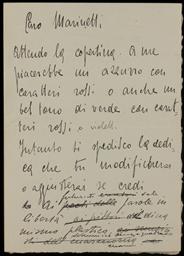 Caro Marinetti
attendo la copertina. a me
piacerebbe un azzurro con
caratteri rossi o anche un
bel tono di verde con carat
teri rossi o violetti.
Intanto ti spedisco la dedi
ca che tu modificherai
o aggiusterai se credi
ai futuristi
ai poeti delle parole in
libertà
plastico